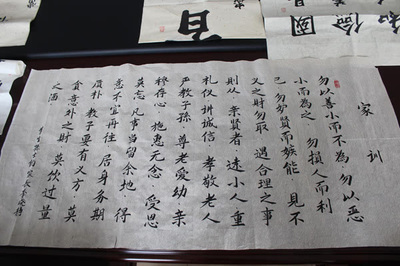 國
儉
家訓
勿以善小而不為 勿以惡
小而為之 勿損人而利
己 勿妒賢而嫉能 見不
义之财勿取 遇合理之事
則从 亲賢者 遠小人 重
礼仪 讲诚信 孝敬老人
严教子孫 尊老爱幼 亲
穆存心 施惠无念 受恩
莫忘 凡事当留余地 得
意不宜再往 居身务期
质朴 教子要有义方 莫
贪意外之财 莫饮过量
之酒